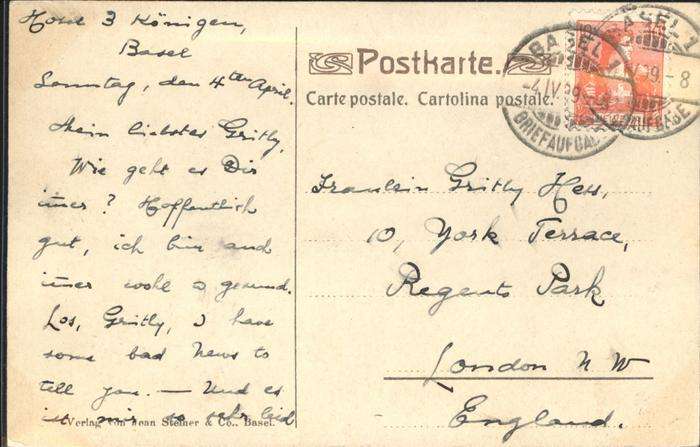 Hotel 3 Königen,
Basel
Sonntag, den 4ten April.
Mein liebstes Gritly,
Wie geht es Dir
imer? Hoffentlich
gut, ich bin auch
imer wohl & gesund.
Los, Gritly, I have
some bad News to
tell you. — Und es
ist mir so sehr leid
Verlag von Jean Steiner & Co., Basel.
Postkarte.
Carte postale. Cartolina postale.
BASEL 1
BRIEFAUFGABE
Fraulein Gritly Hess,
10, York Terrace,
Regents Park
London N W
England.